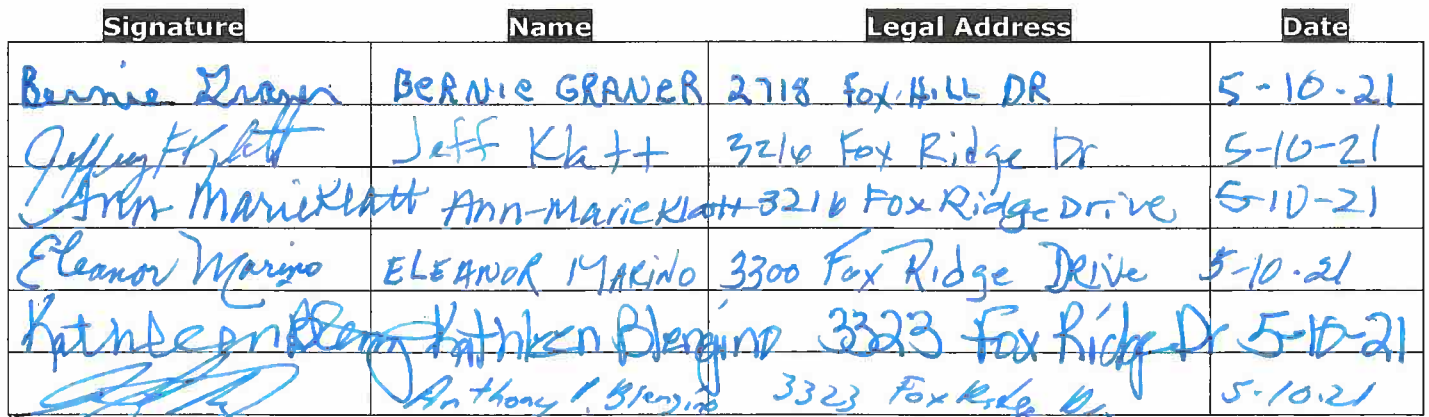 Signature Name Legal Address Date
Bernie Graner BERNIE GRANER 2718 FOX HILL DR 5-10-21
Jeffrey Klatt Jeff Klatt 3216 Fox Ridge Dr 5-10-21
Ann Marie Klatt Ann-Marie Klatt 3216 Fox Ridge Drive 5-10-21
Eleanor Marino ELEANOR MARINO 3300 Fox Ridge DRive 5-10-21
Kathleen Kathleen Blengino 3323 Fox Ridge Dr 5-10-21
Anthony Blengino 3323 Fox Ridge Dr 5-10-21